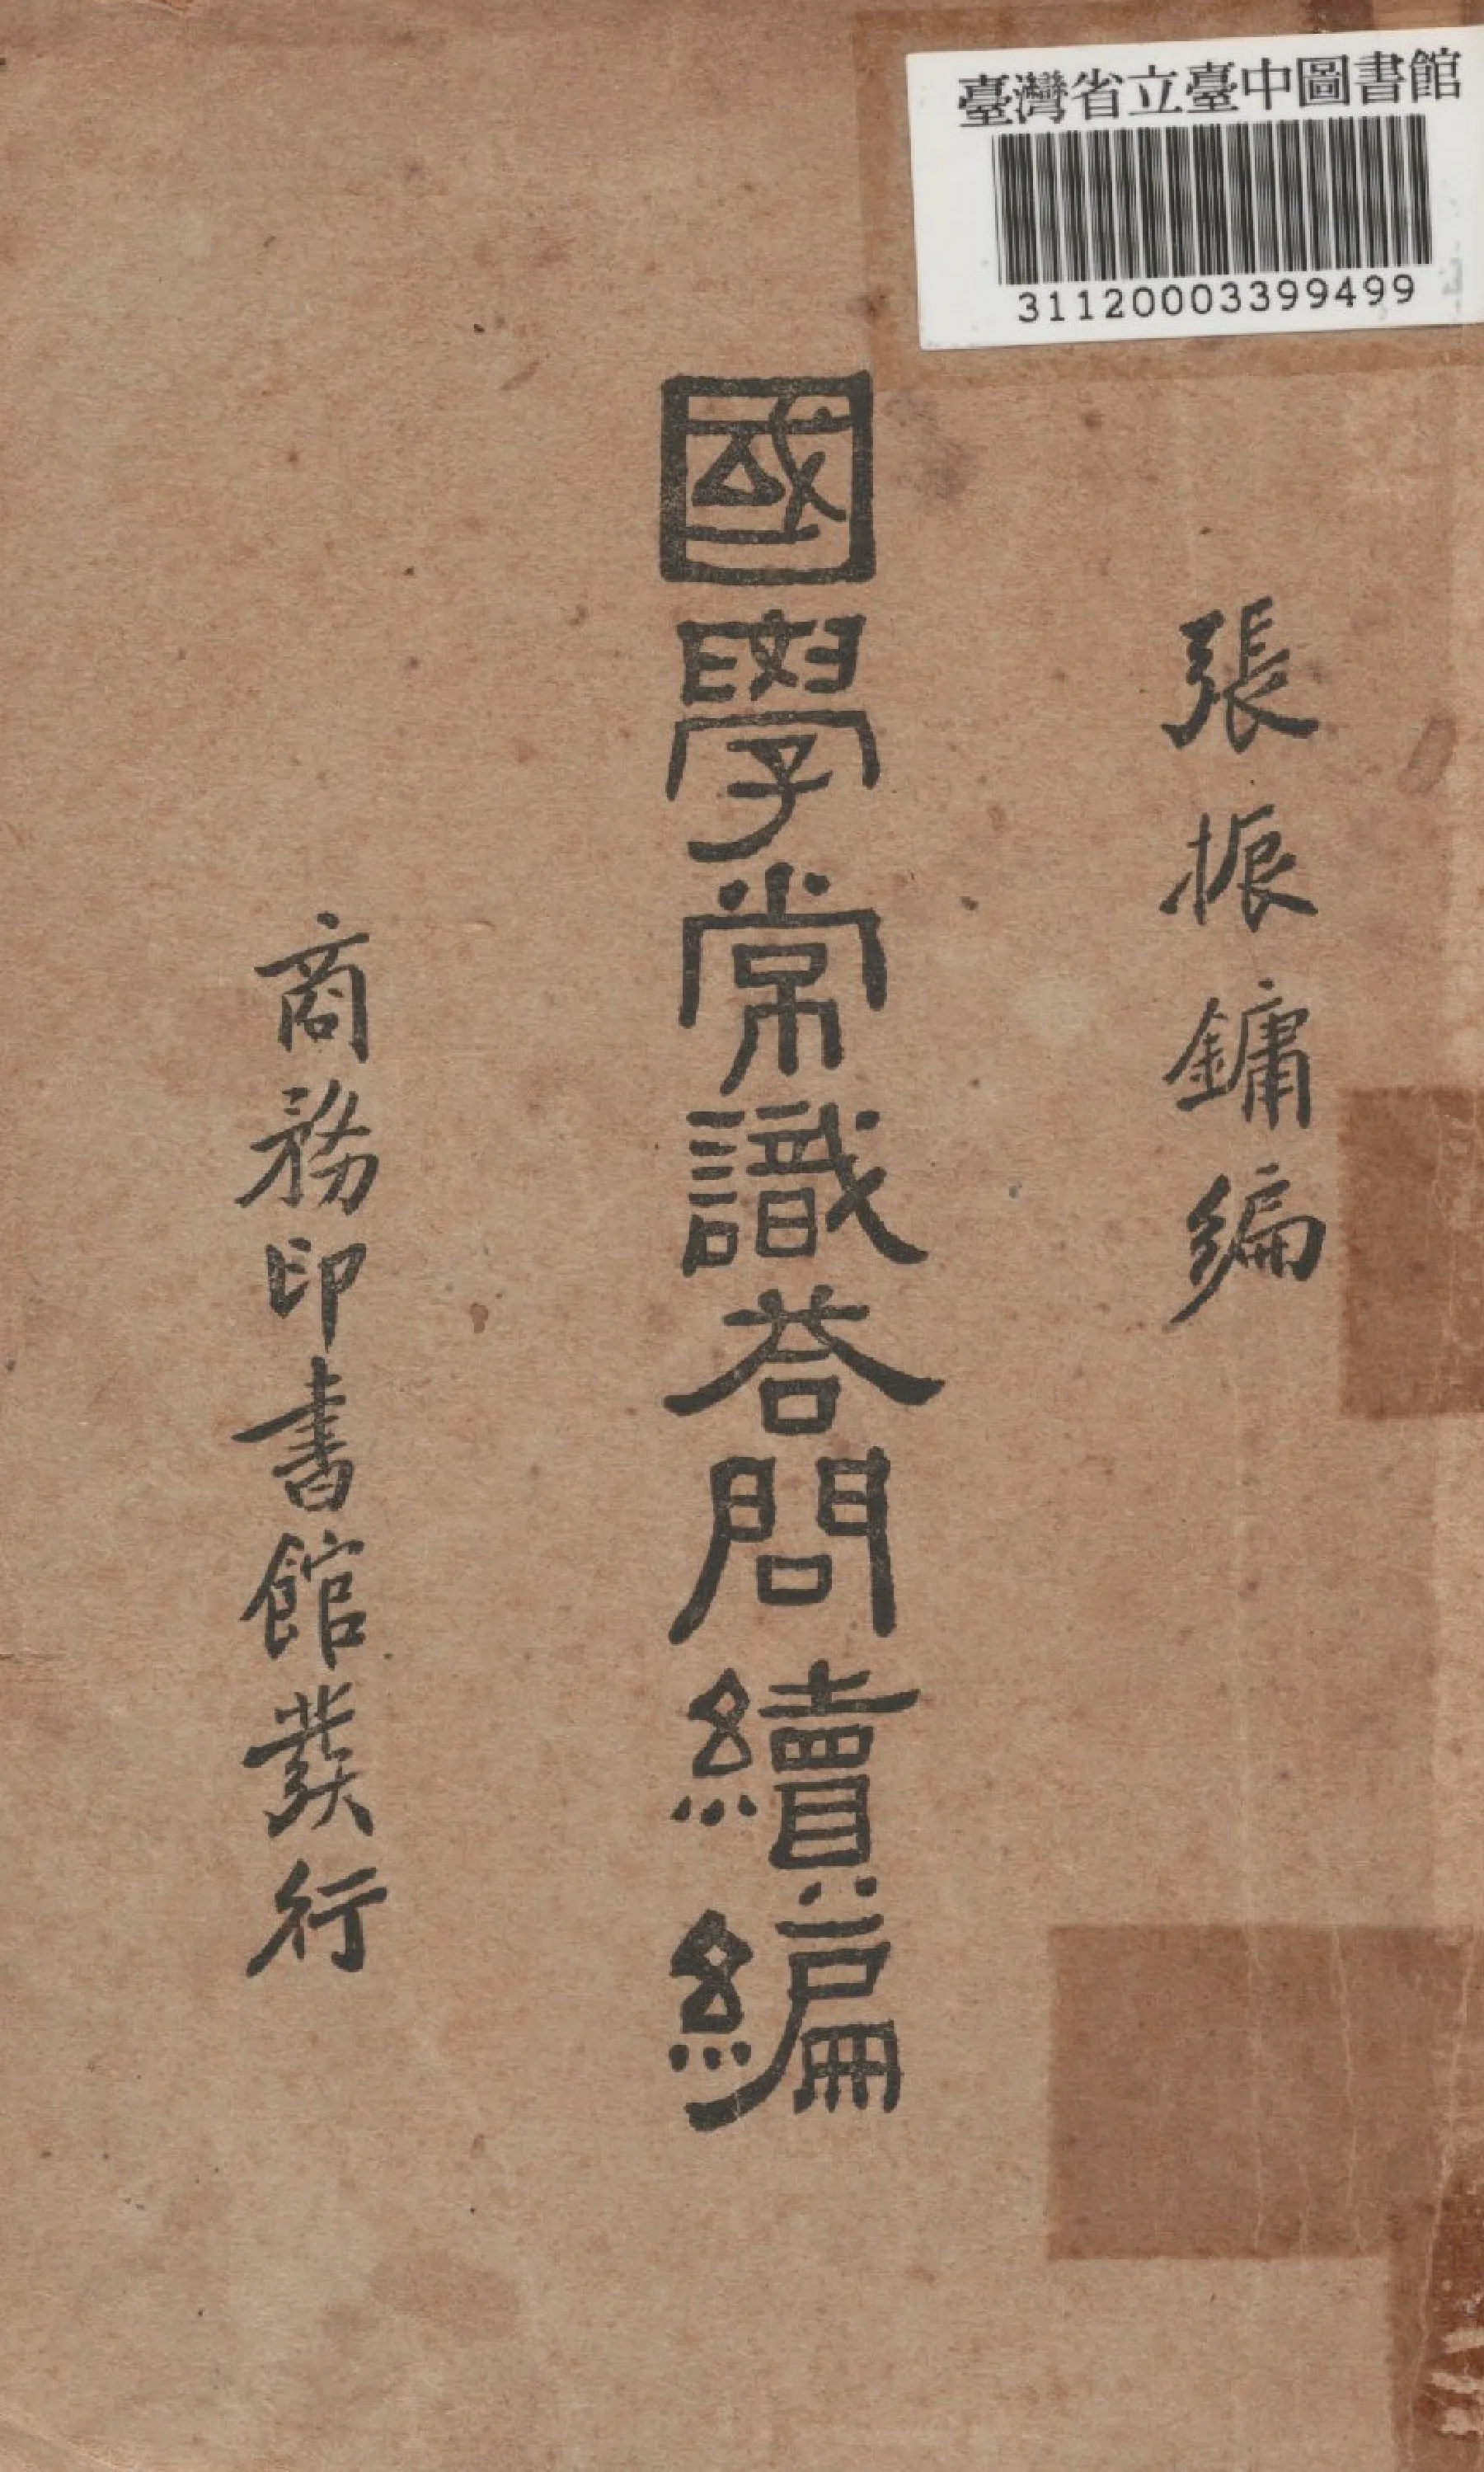 臺灣省立臺中圖書館
31120003399499
張振鏞編
國學常識荅問續編
商務印書館發行